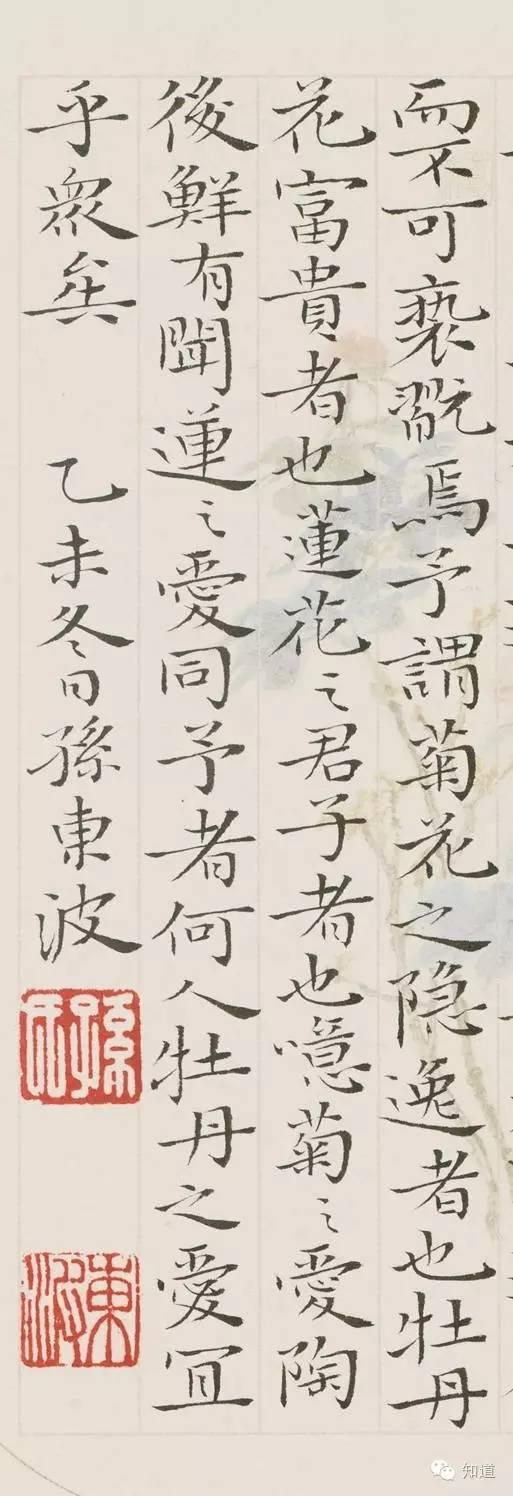 而不可褻翫焉予謂菊花之隐逸者也牡丹
花富貴者也蓮花之君子者也噫菊之愛陶
後鮮有聞蓮之愛同予者何人牡丹之愛宜
乎衆矣 乙未冬日孫東波
孫印
東波
知道